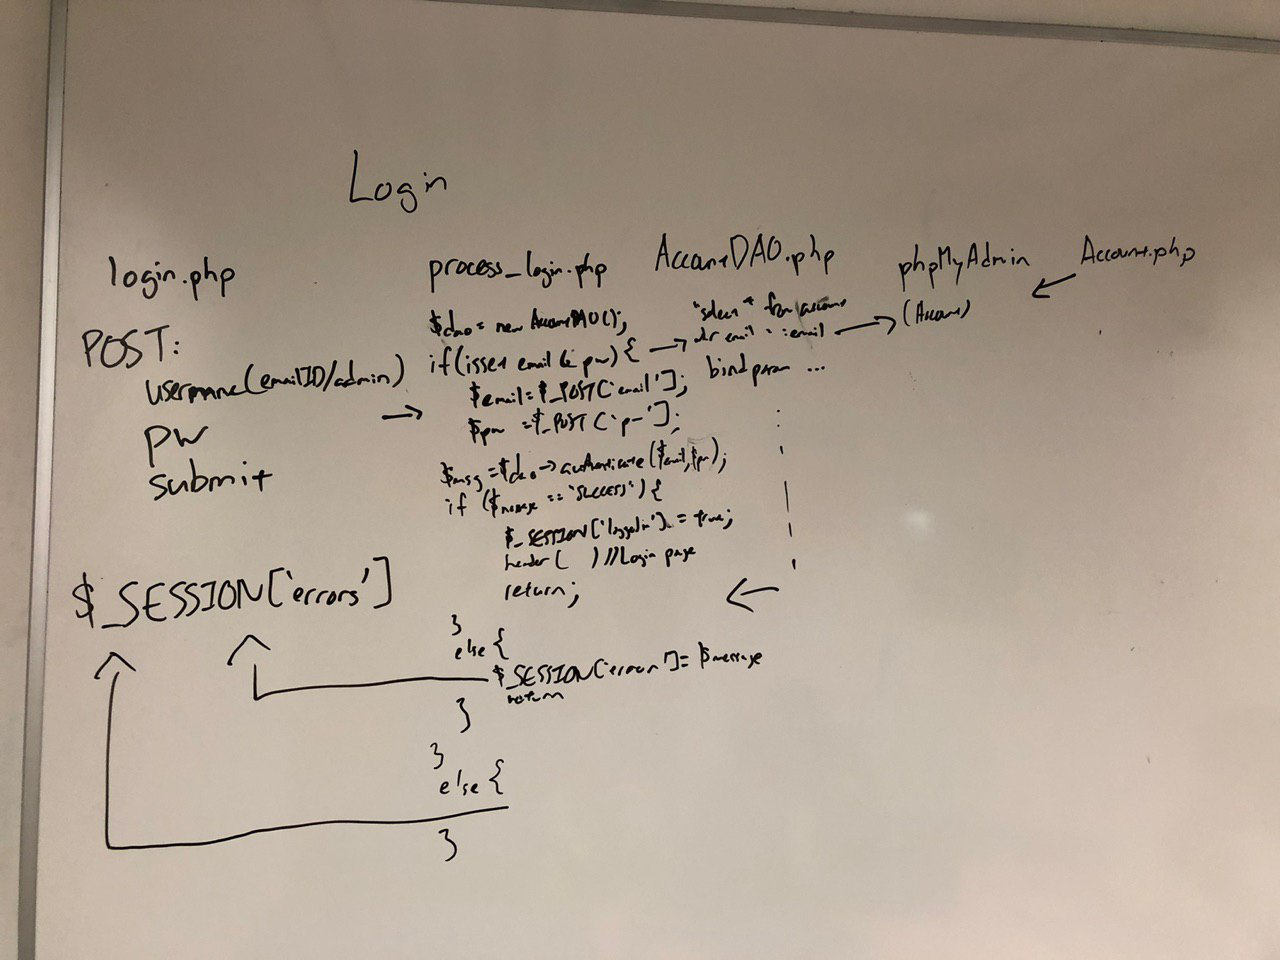 Login
login.php
POST:
username(emailID/admin)
pw
submit
$_SESSION['errors']
process_login.php
$dao = new AccountDAO();
if(isset email & pw) {
$email=$_POST['email'];
$pw =$_POST['p-'];
$msg=$dao→authenticate($email,$pw);
if ($message == "SUCCESS") {
$_SESSION['loggedin'] = true;
header( ) //Login page
return;
}
else {
$_SESSION['error']= $message
return
}
}
else {
}
AccountDAO.php
"select * from account
whr email = :email
bindparam ...
phpMyAdmin
(Account)
Account.php